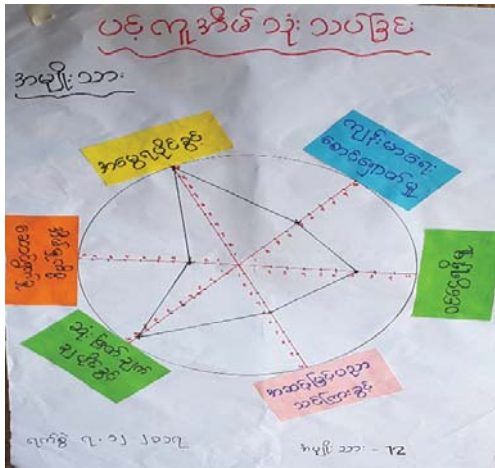 ပင့်ကူအိမ် သုံးသပ်ခြင်း
အမျိုးသား
အမွေရပိုင်ခွင့်
ကျန်းမာရေး
စောင့်ရှောက်မှု
ဝင်ငွေရရှိမှု
အဆင့်မြင့်ပညာ
သင်ကြားခွင့်
ဆုံးဖြတ်ချက်
ချပိုင်ခွင့်
ရက်စွဲ ၇.၁၂ ၂၀၁၇
အမျိုးသား - 12